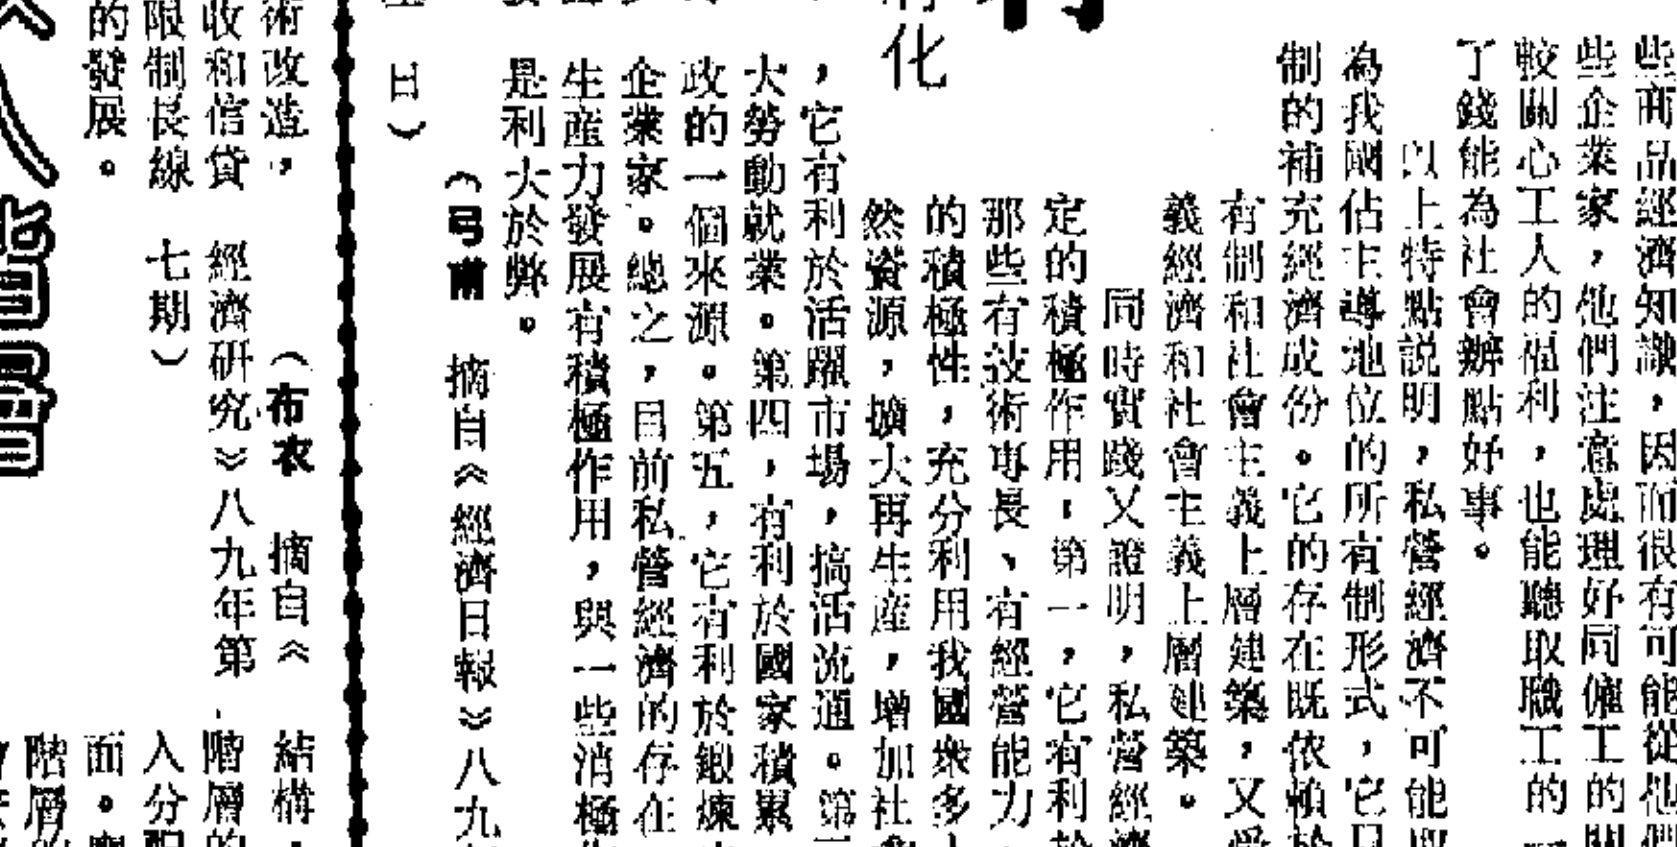 些商品經濟知識，因而很有可能從他們
些企業家，他們注意處理好同僱工的關
較關心工人的福利，也能聽取職工的
了錢能為社會辦點好事。
以上特點説明，私營經濟不可能
為我國佔主導地位的所有制形式，它
制的補充經濟成份。它的存在既依賴於
有制和社會主義上層建築，又受
義經濟和社會主義上層建築。
同時實踐又證明，私營經濟
定的積極作用：第一，它有利於
那些有技術專長、有經營能力
的積極性，充分利用我國衆多
然資源，擴大再生産，增加社會
，它有利於活躍市場，搞活流通。第
大勞動就業。第四，有利於國家積累
政的一個來源。第五，它有利於鍛煉
企業家。總之，目前私營經濟的存在
生産力發展有積極作用，與一些消極
是利大於弊。
（弓甫 摘自《經濟日報》八九
日）
化
術改造，
收和信貸
限制長線
的發展。
（布衣 摘自《
經濟研究》八九年第
七期）
結構，
階層的
入分配
面。
階層的